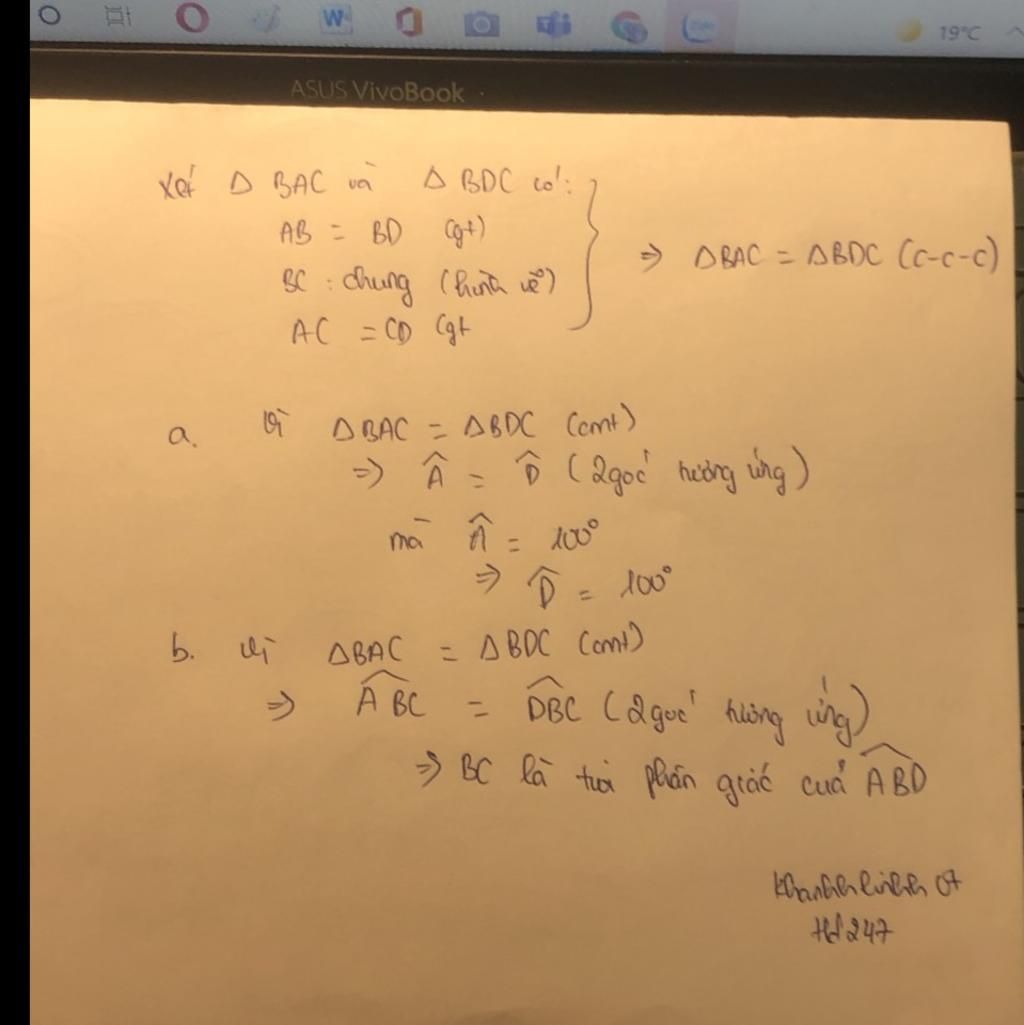 19°C
ASUS VivoBook
Xét Δ BAC và Δ BDC có:
AB = BD (gt)
BC : chung (hình vẽ)
AC = CD (gt
⇒ ΔBAC = ΔBDC (c-c-c)
a. Vì ΔBAC = ΔBDC (cmt)
⇒ Â = D̂ (2 góc tương ứng)
mà Â = 100°
⇒ D̂ = 100°
b. Vì ΔBAC = ΔBDC (cmt)
⇒ \widehat{ABC} = \widehat{DBC} (2 góc tương ứng)
⇒ BC là tia phân giác của \widehat{ABD}
Khanhlinhh 07
Hd 247